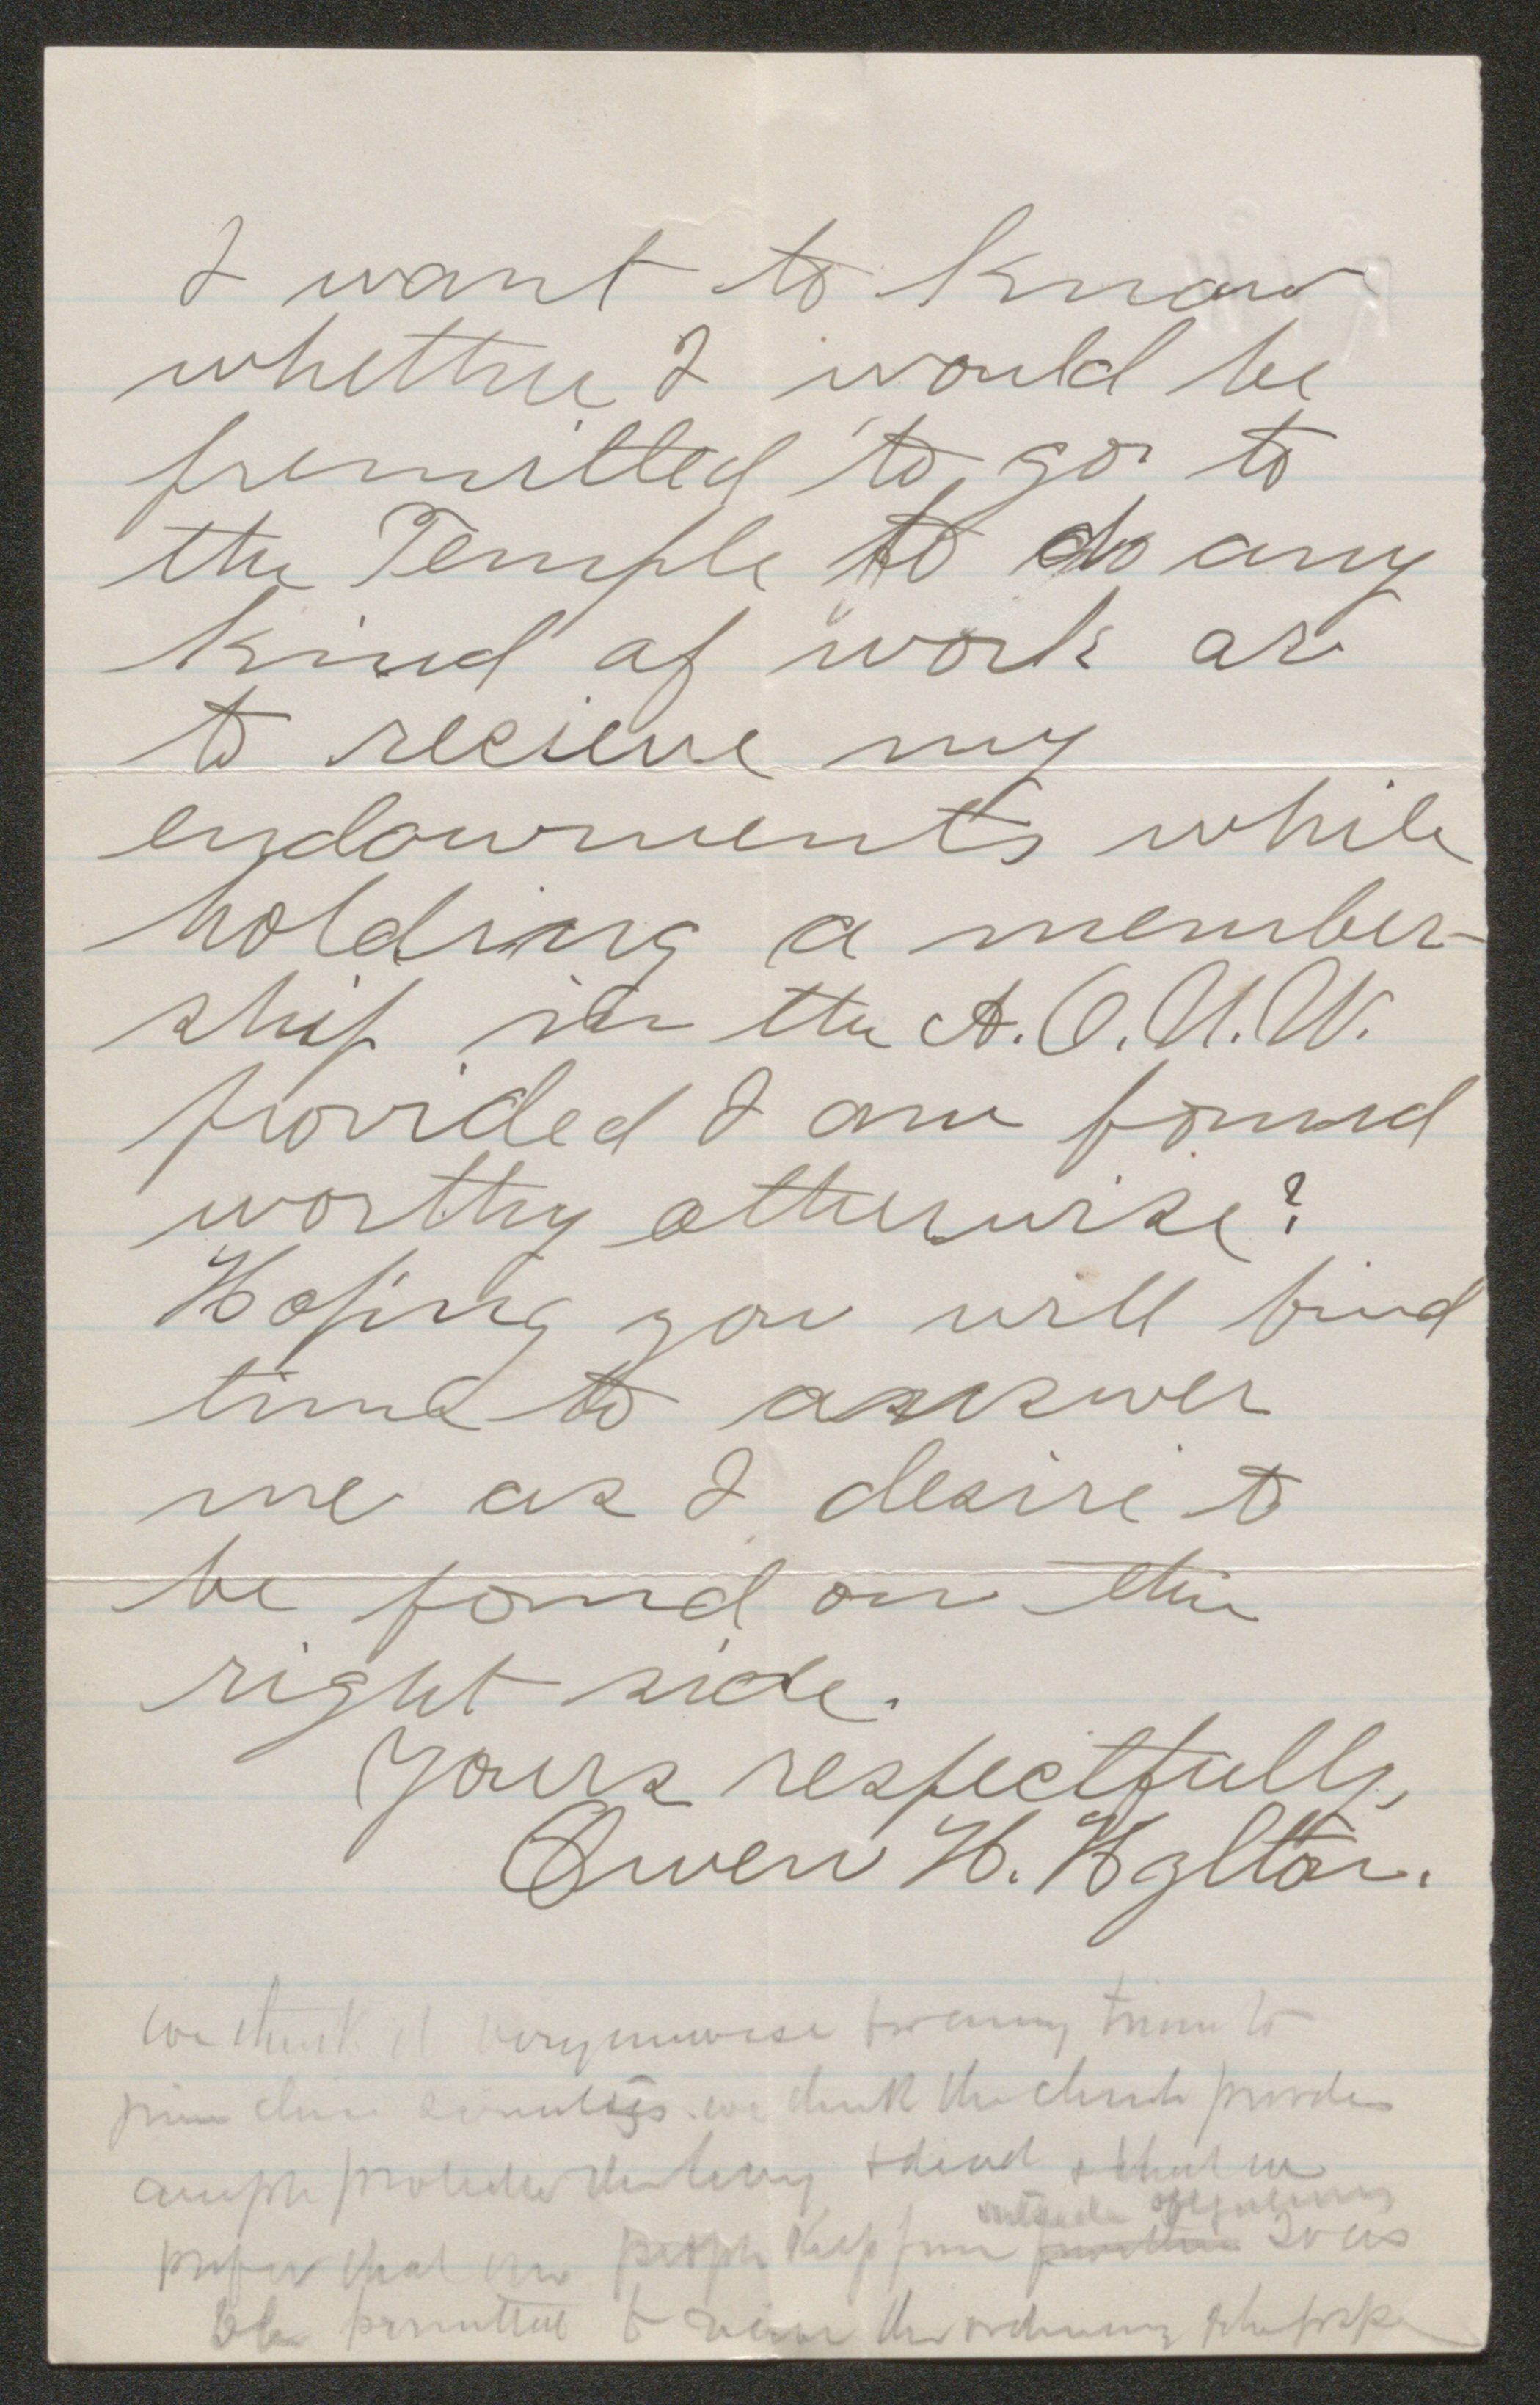 I want to know
whether I would be
premitted to go to
the Temple to do any
kind of work or
to recieve my
endowments while
holding a member-
ship in the A.O.U.W.
provided I am found
worthy otherwise?
Hoping you will find
time to answer
me as I desire to
be found on the
right side.
Yours respectfully,
Owen H. Hylton.
we think it very unwise for any man to
join these societies. we think the church provides
ample protection the living & dead & that we
outside
prefer that our people keep from so as
to be permitted to the ordinances of the